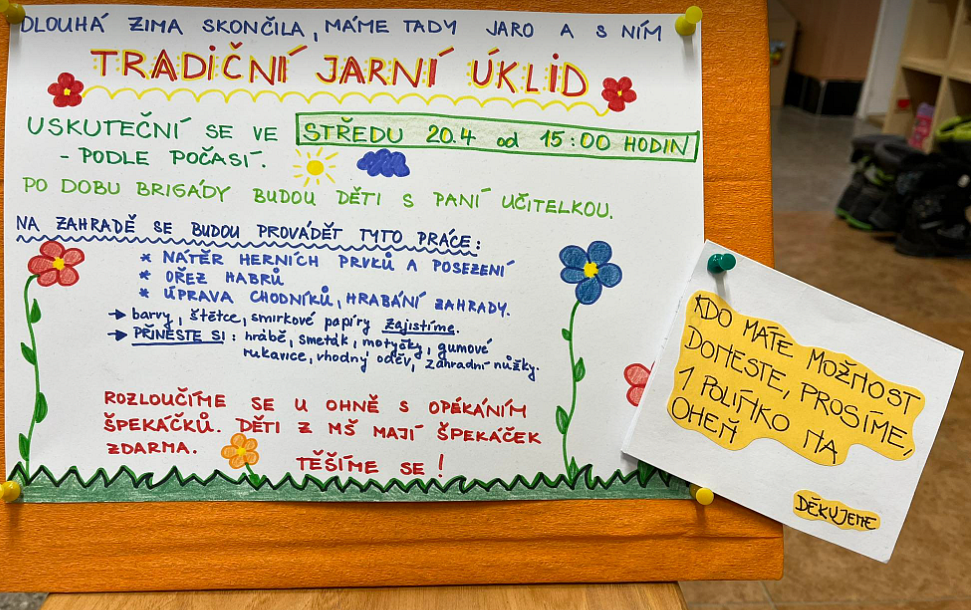 DLOUHÁ ZIMA SKONČILA, MÁME TADY JARO A S NÍM
TRADIČNÍ JARNÍ ÚKLID
USKUTEČNÍ SE VE STŘEDU 20.4 od 15:00 HODIN
- PODLE POČASÍ.
PO DOBU BRIGÁDY BUDOU DĚTI S PANÍ UČITELKOU.
NA ZAHRADĚ SE BUDOU PROVÁDĚT TYTO PRÁCE:
* NÁTĚR HERNÍCH PRVKŮ A POSEZENÍ
* OŘEZ HABRŮ
* ÚPRAVA CHODNÍKŮ, HRABÁNÍ ZAHRADY.
→ barvy, štětce, smirkové papíry zajistíme.
→ PŘINESTE SI: hrábě, smeták, motyčky, gumové
rukavice, vhodný oděv, zahradní nůžky.
ROZLOUČÍME SE U OHNĚ S OPÉKÁNÍM
ŠPEKÁČKŮ. DĚTI Z MŠ MAJÍ ŠPEKÁČEK
ZDARMA.
TĚŠÍME SE!
KDO MÁTE MOŽNOST
DONESTE, PROSÍME,
1 POLÍNKO NA
OHEŇ
DĚKUJEME